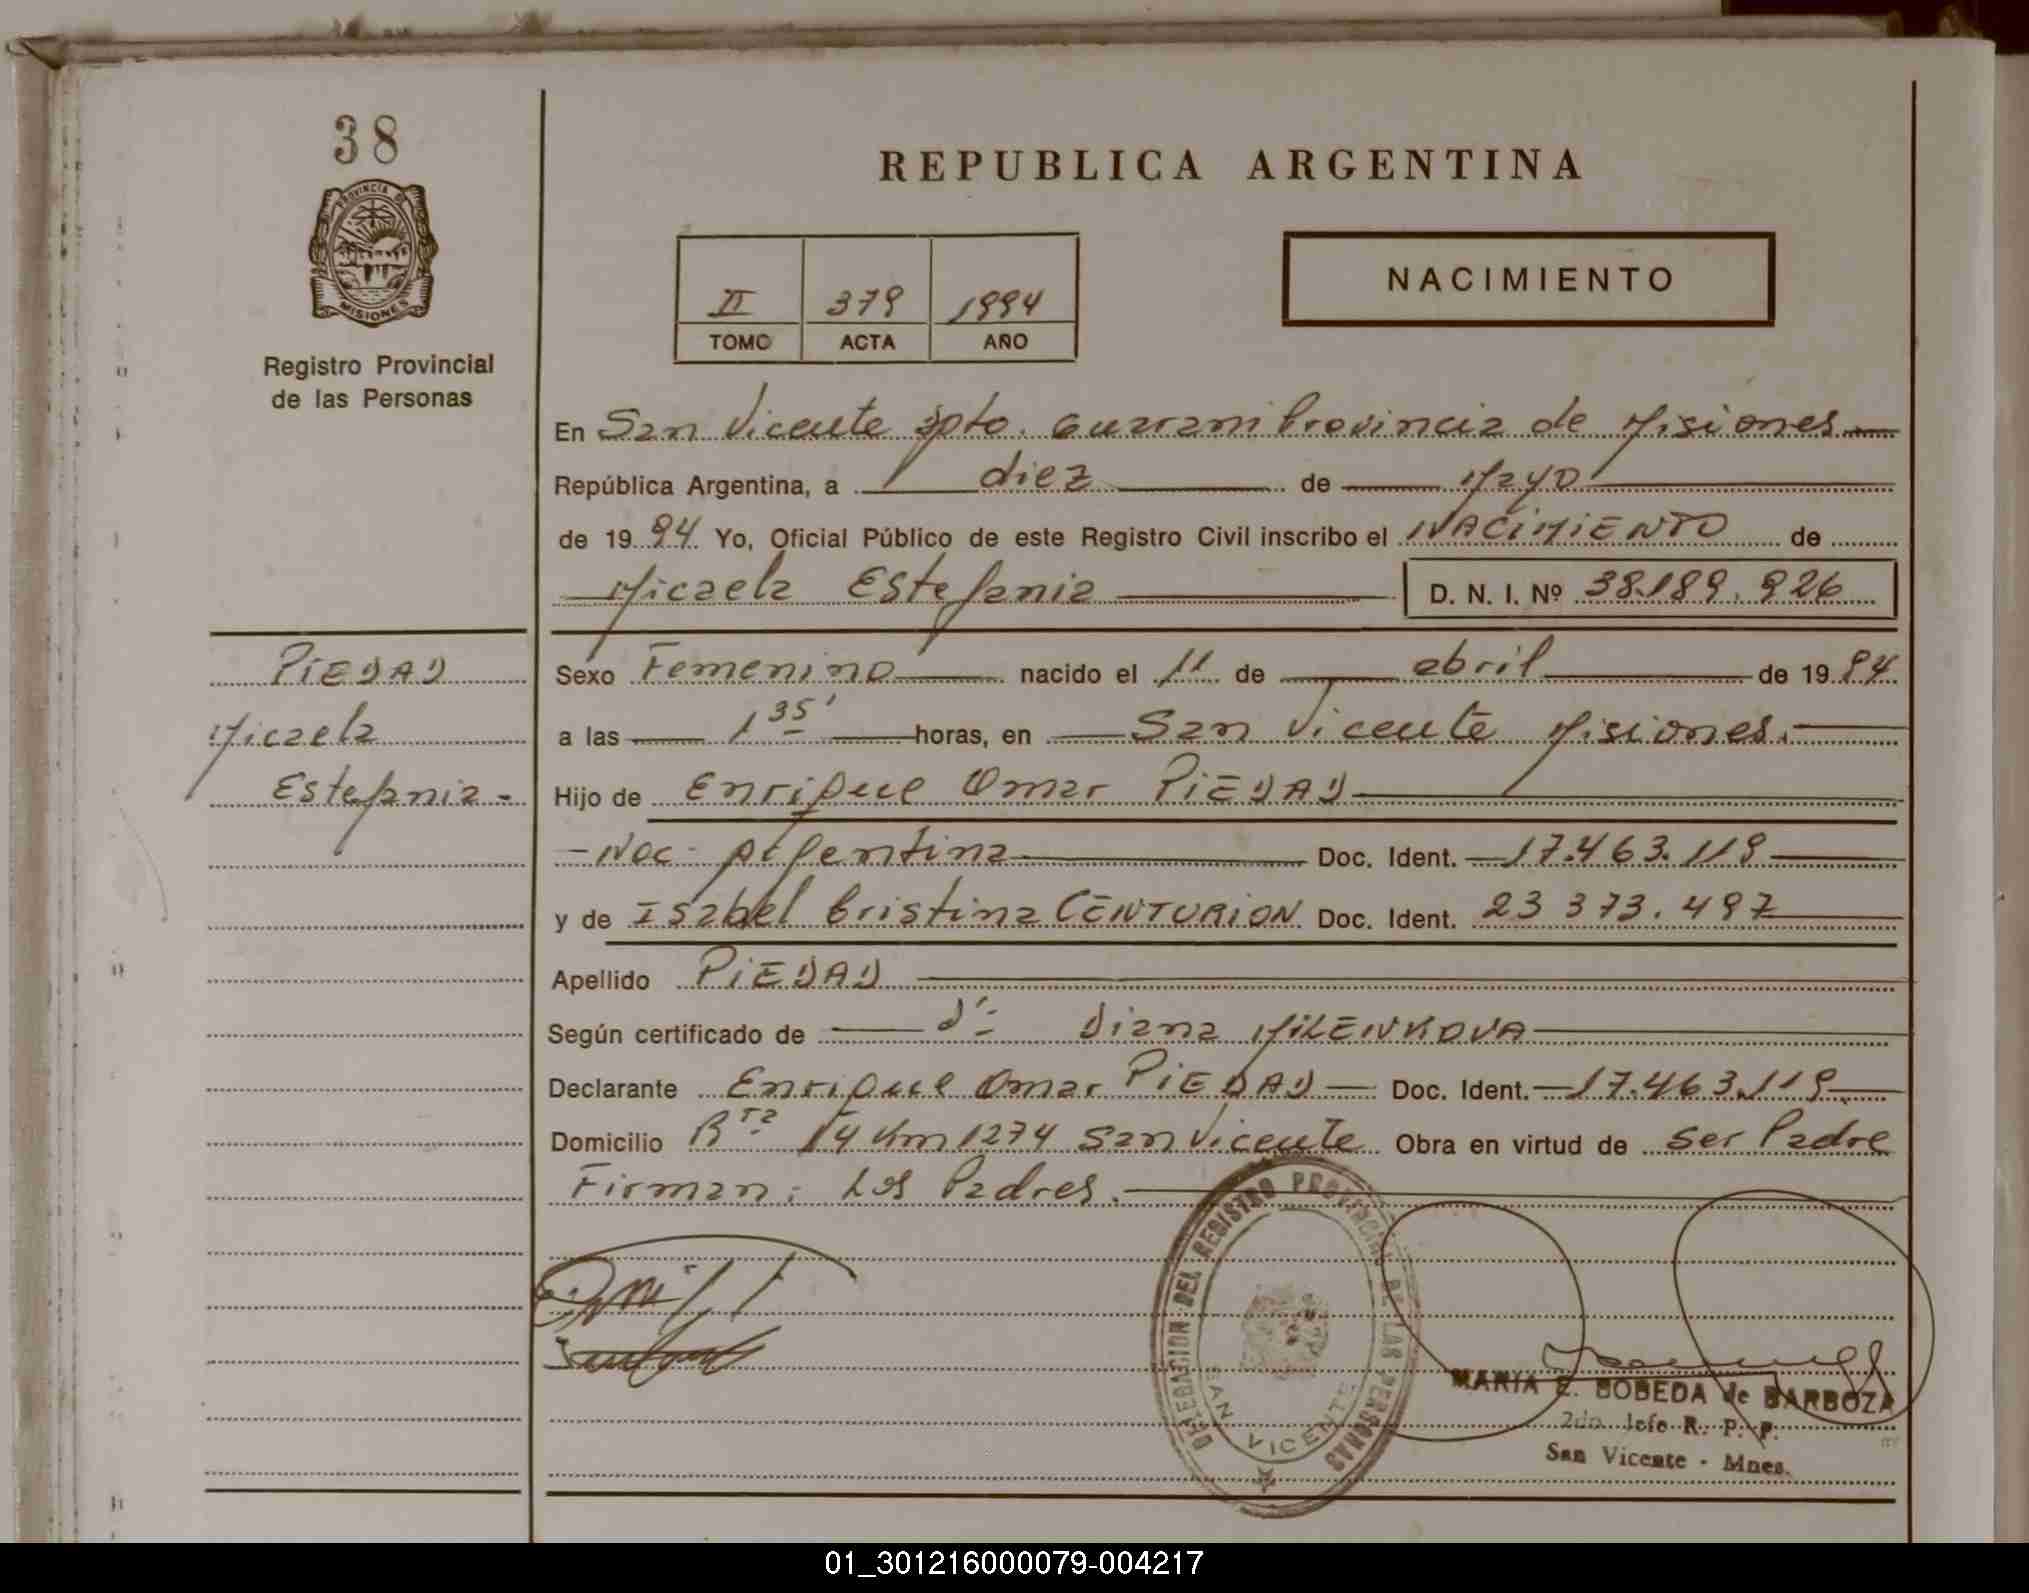 38
PROVINCIA DE
MISIONES
Registro Provincial
de las Personas
REPUBLICA ARGENTINA
II 379 1994
TOMO ACTA AÑO
NACIMIENTO
En San Vicente Dpto. Guarani Provincia de Misiones
República Argentina, a diez de Mayo
de 19 94 Yo, Oficial Público de este Registro Civil inscribo el NACIMIENTO de
Micaela Estefania D. N. I. Nº 38.189.926
PIEDAD
Micaela
Estefania -
Sexo Femenino nacido el 11 de abril de 19 94
a las 1 35' horas, en San Vicente Misiones.
Hijo de Enrique Omar PIEDAD
- Nac. Argentina Doc. Ident. 17.463.119
y de Isabel Cristina CENTURION Doc. Ident. 23 373.497
Apellido PIEDAD
Según certificado de Dra. Diana MILENKOVA
Declarante Enrique Omar PIEDAD Doc. Ident. 17.463.119
Domicilio Rta 14 Km 1274 San Vicente Obra en virtud de ser Padre
Firman: Los Padres.
DELEGACION DEL REGISTRO PROVINCIAL DE LAS PERSONAS
SAN VICENTE
MARIA E. BOBEDA de BARBOZA
2do. Jefe R. P. P.
San Vicente - Mnes.
01_301216000079-004217